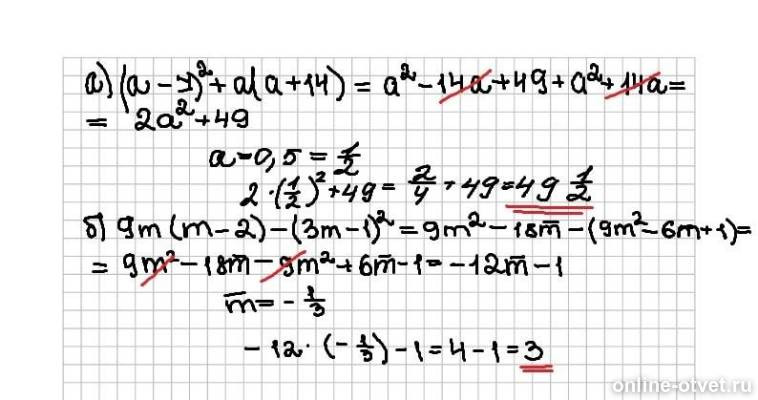 а) (a - 7)² + a(a + 14) = a² - 14a + 49 + a² + 14a =
= 2a² + 49
a = 0,5 = 1/2
2 · (1/2)² + 49 = 2/4 + 49 = 49 1/2
б) 9m (m - 2) - (3m - 1)² = 9m² - 18m - (9m² - 6m + 1) =
= 9m² - 18m - 9m² + 6m - 1 = -12m - 1
m = - 1/3
- 12 · (- 1/3) - 1 = 4 - 1 = 3
online-otvet.ru